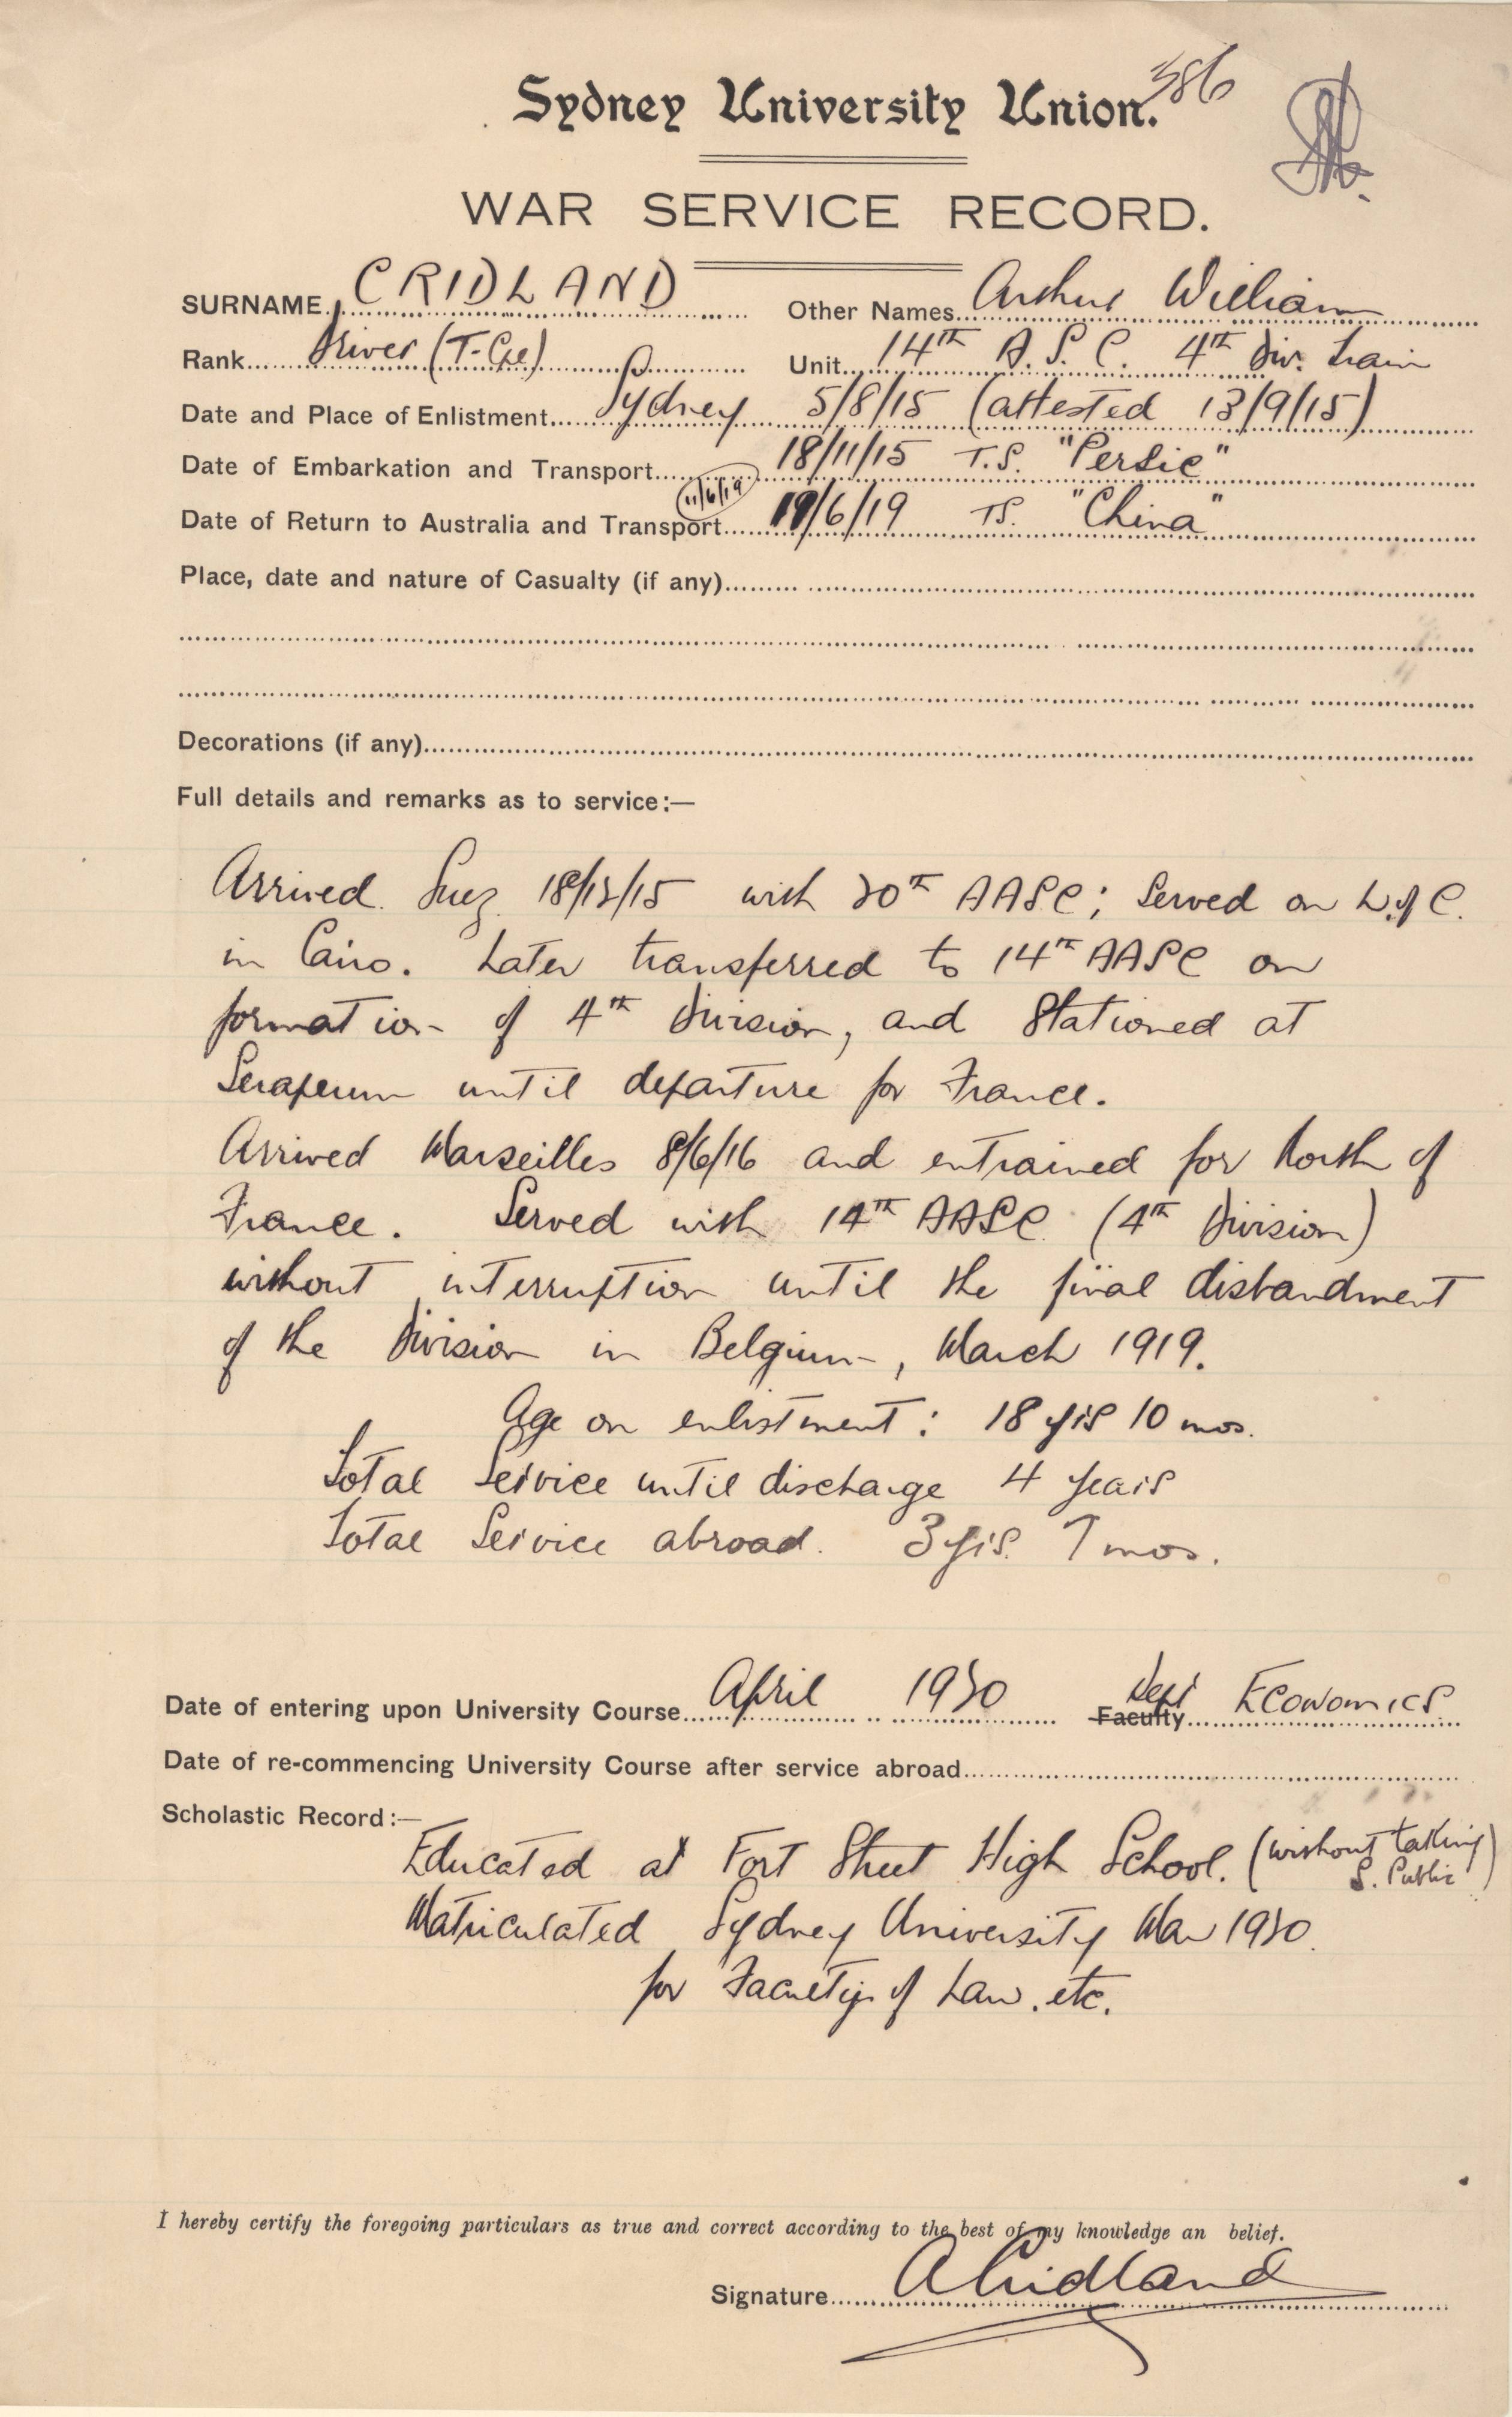 Sydney University Union. 386
WAR SERVICE RECORD.
SURNAME. CRIDLAND Other Names Arthur William
Rank Driver (T-Cpl) Unit 14TH A.S.C. 4TH Div. Train
Date and Place of Enlistment Sydney 5/8/15 (attested 13/9/15)
Date of Embarkation and Transport 18/11/15 T.S. "Persic"
(11/6/19)
Date of Return to Australia and Transport 19/6/19 TS. "China"
Place, date and nature of Casualty (if any)
Decorations (if any)
Full details and remarks as to service:—
Arrived Suez 18/12/15 with 20TH AASC; Served on L.of C.
in Cairo. Later transferred to 14TH AASC on
formation of 4TH Division, and Stationed at
Serapeum until departure for France.
Arrived Marseilles 8/6/16 and entrained for North of
France. Served with 14TH AASC (4TH Division)
without interruption until the final disbandment
of the Division in Belgium, March 1919.
Age on enlistment: 18 yrs 10 mos.
Total Service until discharge 4 years
Total Service abroad. 3 yrs. 7 mos.
Date of entering upon University Course April 1920 Dept Faculty Economics
Date of re-commencing University Course after service abroad
Scholastic Record:—
Educated at Fort Street High School. (without taking
S. Public)
Matriculated Sydney University Mar 1920.
for Faculty of Law. etc.
I hereby certify the foregoing particulars as true and correct according to the best of my knowledge an belief.
Signature ACridland